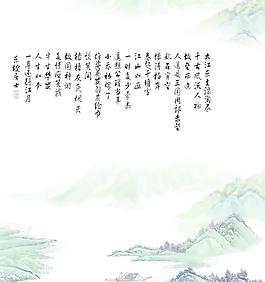 大江东去浪淘尽
千古风流人物
故垒西边
人道是三国周郎赤壁
乱石穿空
惊涛拍岸
卷起千堆雪
江山如画
一时多少豪杰
遥想公瑾当年
小乔初嫁了
雄姿英发羽扇纶巾
谈笑间
樯橹灰飞烟灭
故国神游
多情应笑我
早生华发
人生如梦
一尊还酹江月
东坡居士